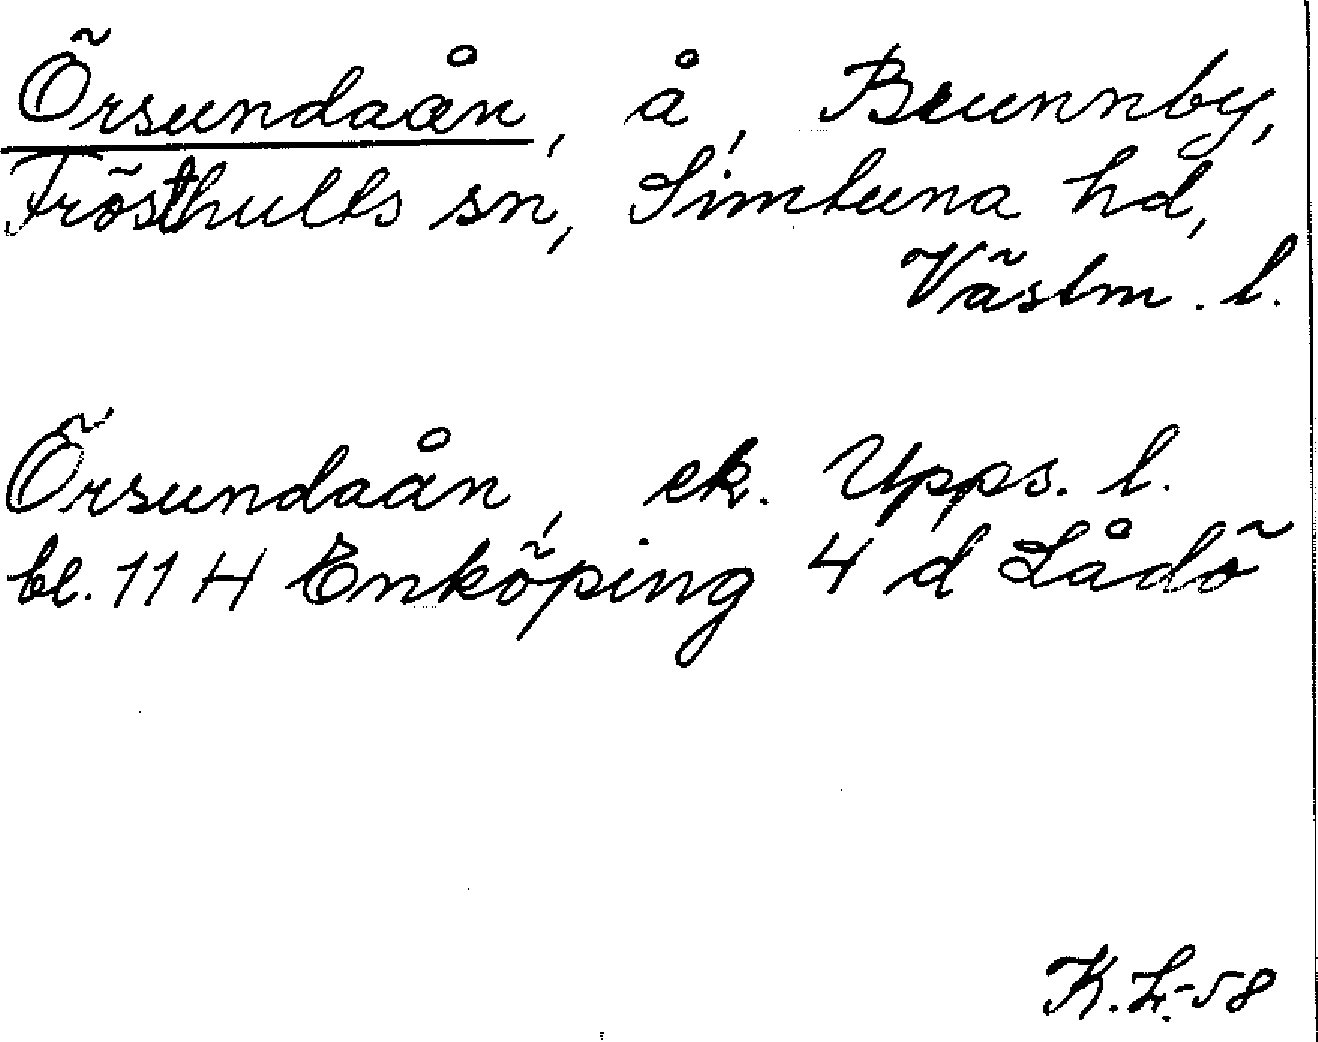 Örsundaån, å, Brunnby,
Frösthults sn, Simtuna hd,
Västm. l.
Örsundaån, ek. Upps. l.
bl. 11 H Enköping 4 d Lådö
K. L. -58